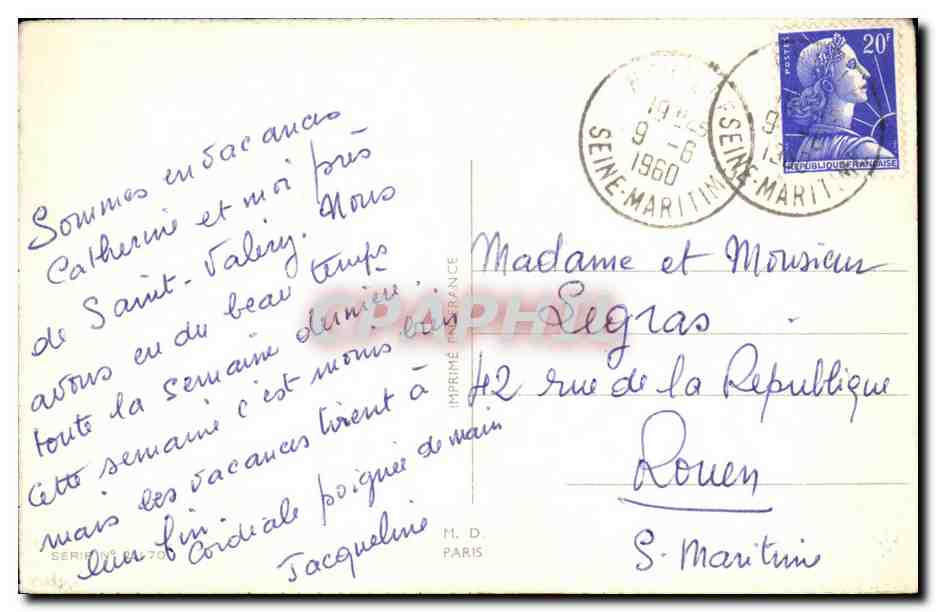 Sommes en vacances
Catherine et moi près
de Saint-Valery. Nous
avons eu du beau temps
toute la semaine dernière.
Cette semaine c'est moins bien
mais les vacances tirent à
leur fin.
Cordiale poignée de main
Jacqueline
SERIE N°
M. D.
PARIS
IMPRIMÉ EN FRANCE
CPAPHIL
19 H45
9 - 6
1960
SEINE-MARITIME
SEINE-MARITIME
POSTES
20F
REPUBLIQUE FRANCAISE
Madame et Monsieur
Legras
42 rue de la Republique
Rouen
S. Maritime